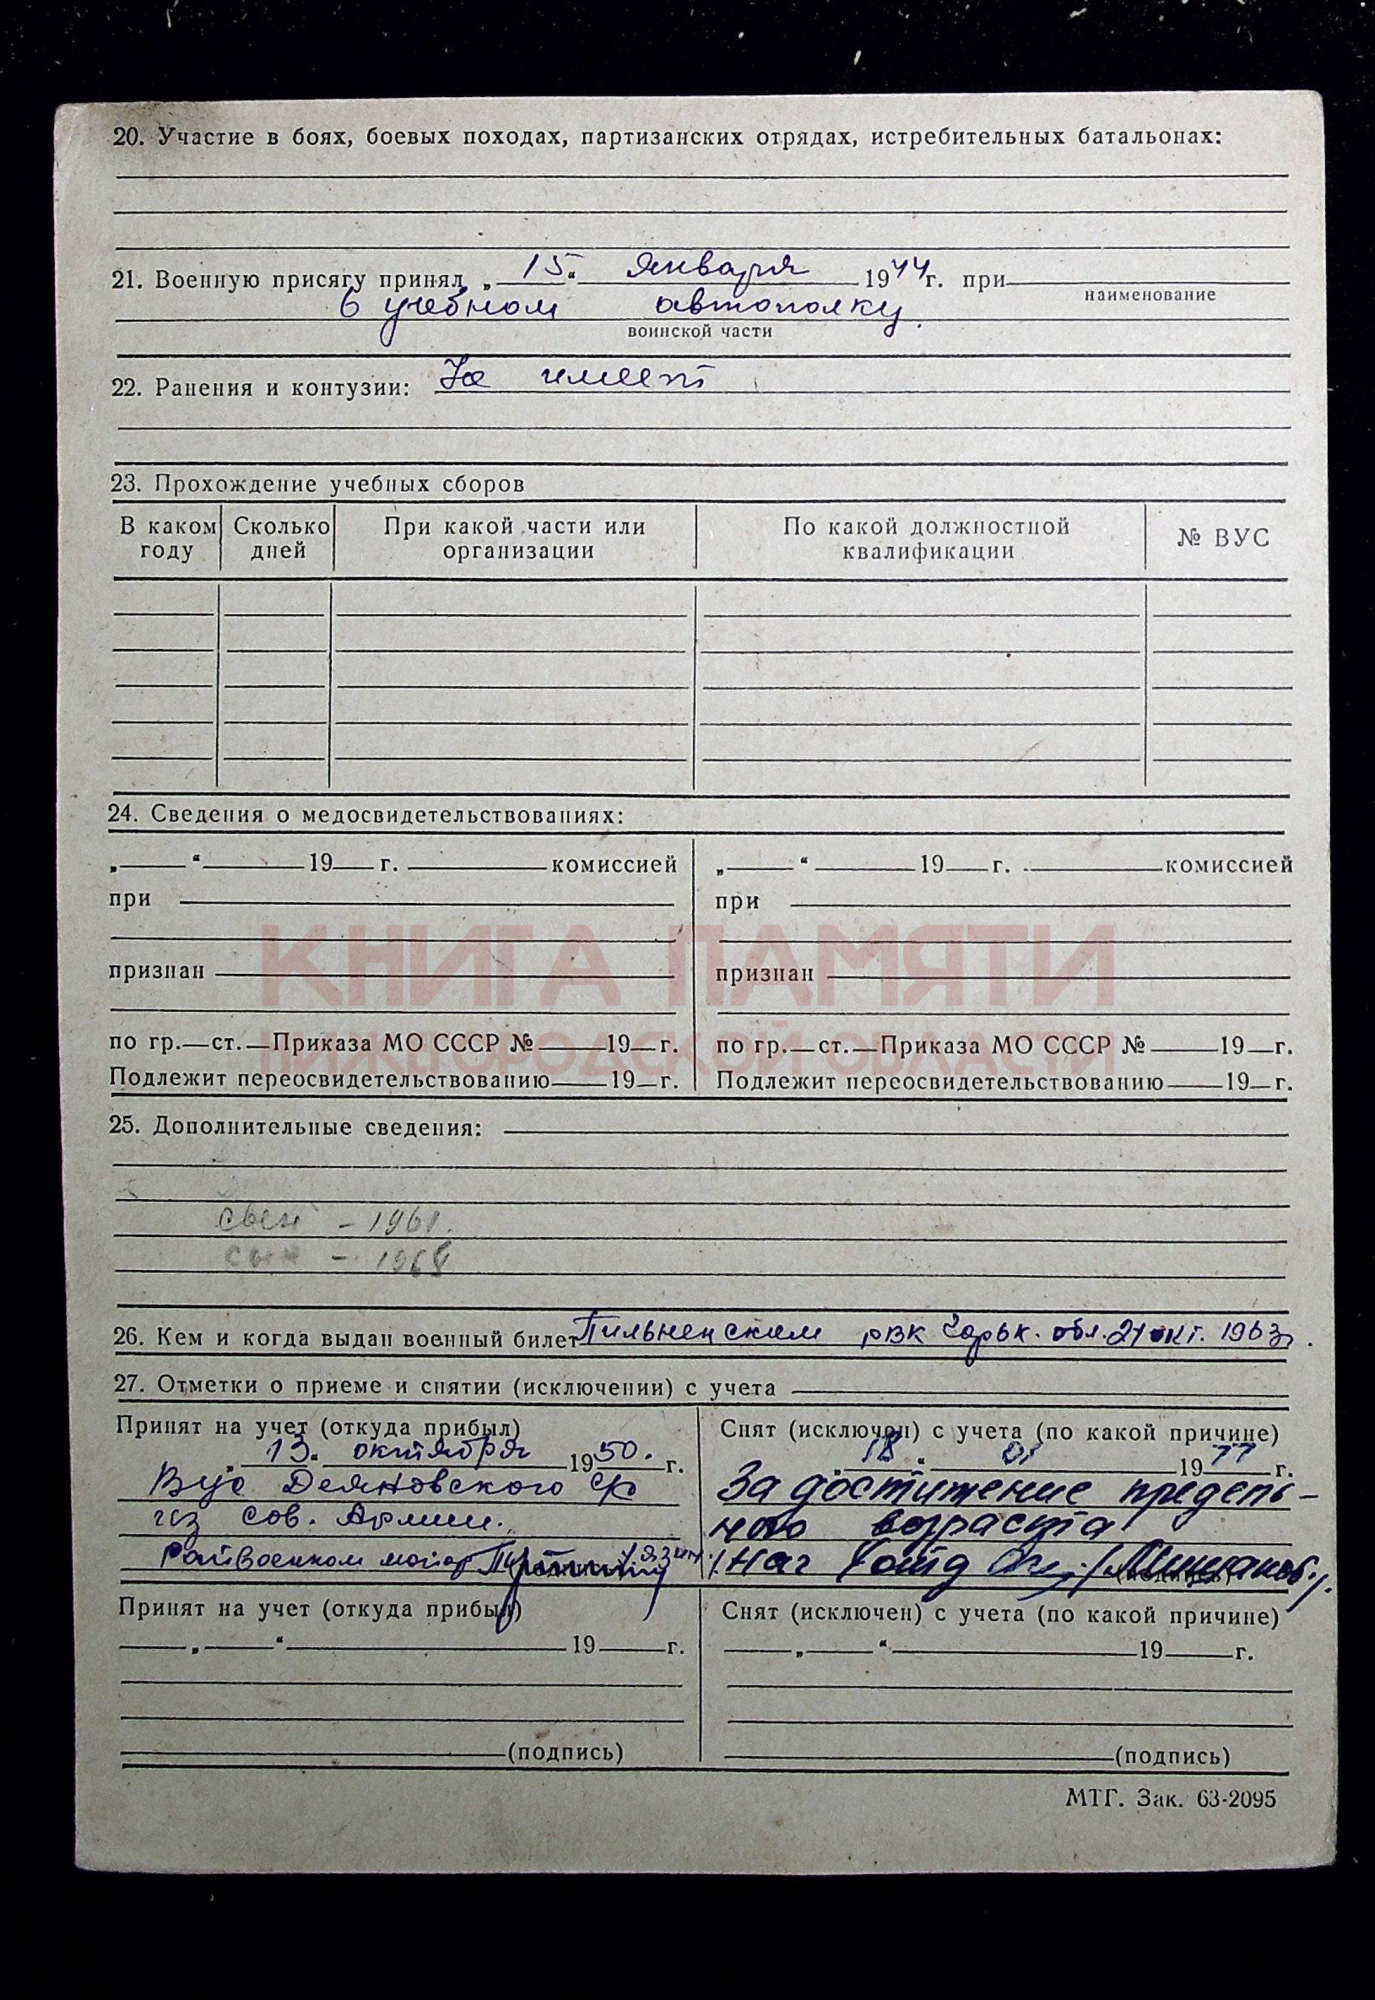 20. Участие в боях, боевых походах, партизанских отрядах, истребительных батальонах:
21. Военную присягу принял „15“ января 1944г. при
наименование
6 учебном автополку.
воинской части
22. Ранения и контузии: Не имеет
23. Прохождение учебных сборов
В каком году Сколько дней При какой части или организации По какой должностной квалификации № ВУС
24. Сведения о медосвидетельствованиях:
„ “ 19 г. комиссией „ “ 19 г. комиссией
при при
КНИГА ПАМЯТИ
признан признан
НИЖЕГОРОДСКОЙ ОБЛАСТИ
по гр. ст. Приказа МО СССР № 19 г. по гр. ст. Приказа МО СССР № 19 г.
Подлежит переосвидетельствованию 19 г. Подлежит переосвидетельствованию 19 г.
25. Дополнительные сведения:
- 1961.
сын - 1968
26. Кем и когда выдан военный билет Пильненским РВК Горьк. обл. 21 окт. 1963г.
27. Отметки о приеме и снятии (исключении) с учета
Принят на учет (откуда прибыл) Снят (исключен) с учета (по какой причине)
„13“ октября 1950. г. „18“ 01 1977 г.
Вус Деяновского с/с За достижение предель-
из сов. Армии. ного возраста
Райвоенком майор /Нач 1 отд
Принят на учет (откуда прибыл) Снят (исключен) с учета (по какой причине)
„ “ 19 г. „ “ 19 г.
(подпись) (подпись)
МТГ. Зак. 63-2095